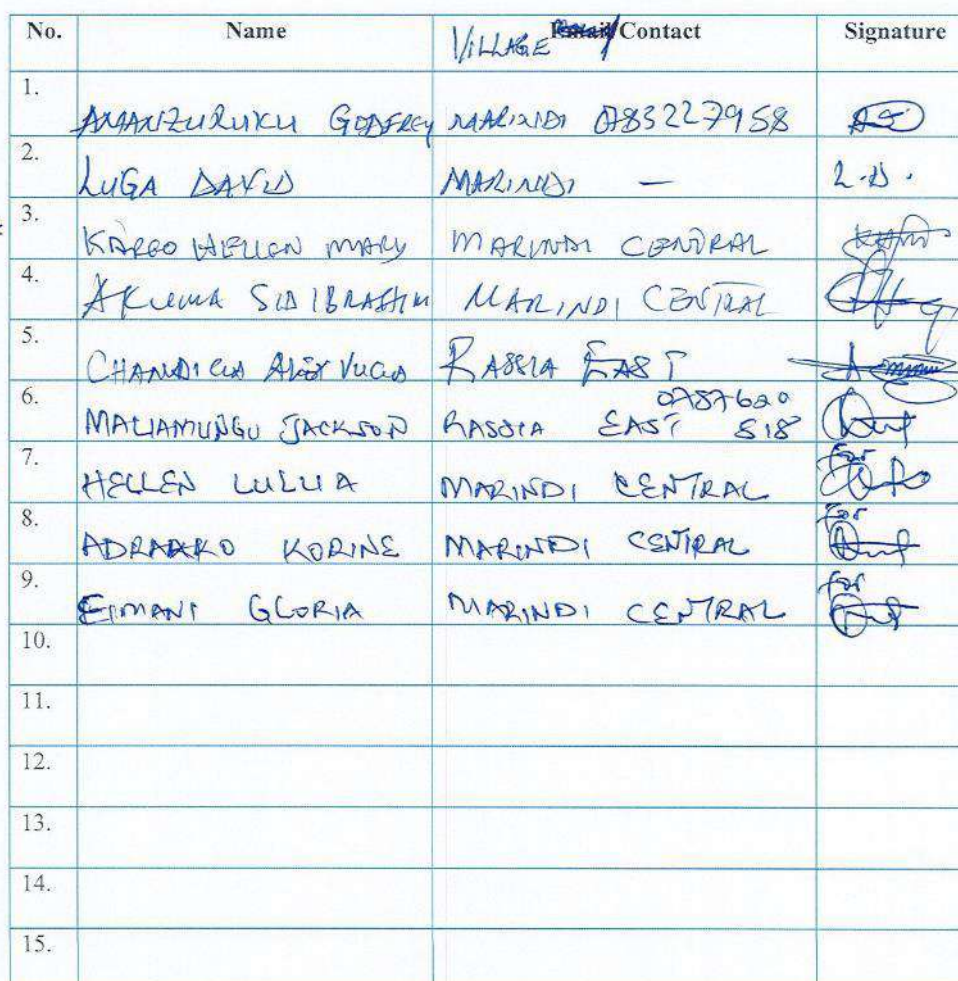 No. Name VILLAGE Email/Contact Signature
1. AMANZURUKU GODFREY MARINDI 0783227958
2. LUGA DAVID MARINDI — L.D.
3. HELLEN MARY MARINDI CENTRAL
4. AKUMA SID IBRAHIM MARINDI CENTRAL
5. ALEX RASSIA EAST
6. MALIAMUNGU JACKSON RASSIA EAST 0787620
518
7. HELLEN LULUA MARINDI CENTRAL for
8. KORINE MARINDI CENTRAL for
9. EIMANI GLORIA MARINDI CENTRAL for
10.
11.
12.
13.
14.
15.